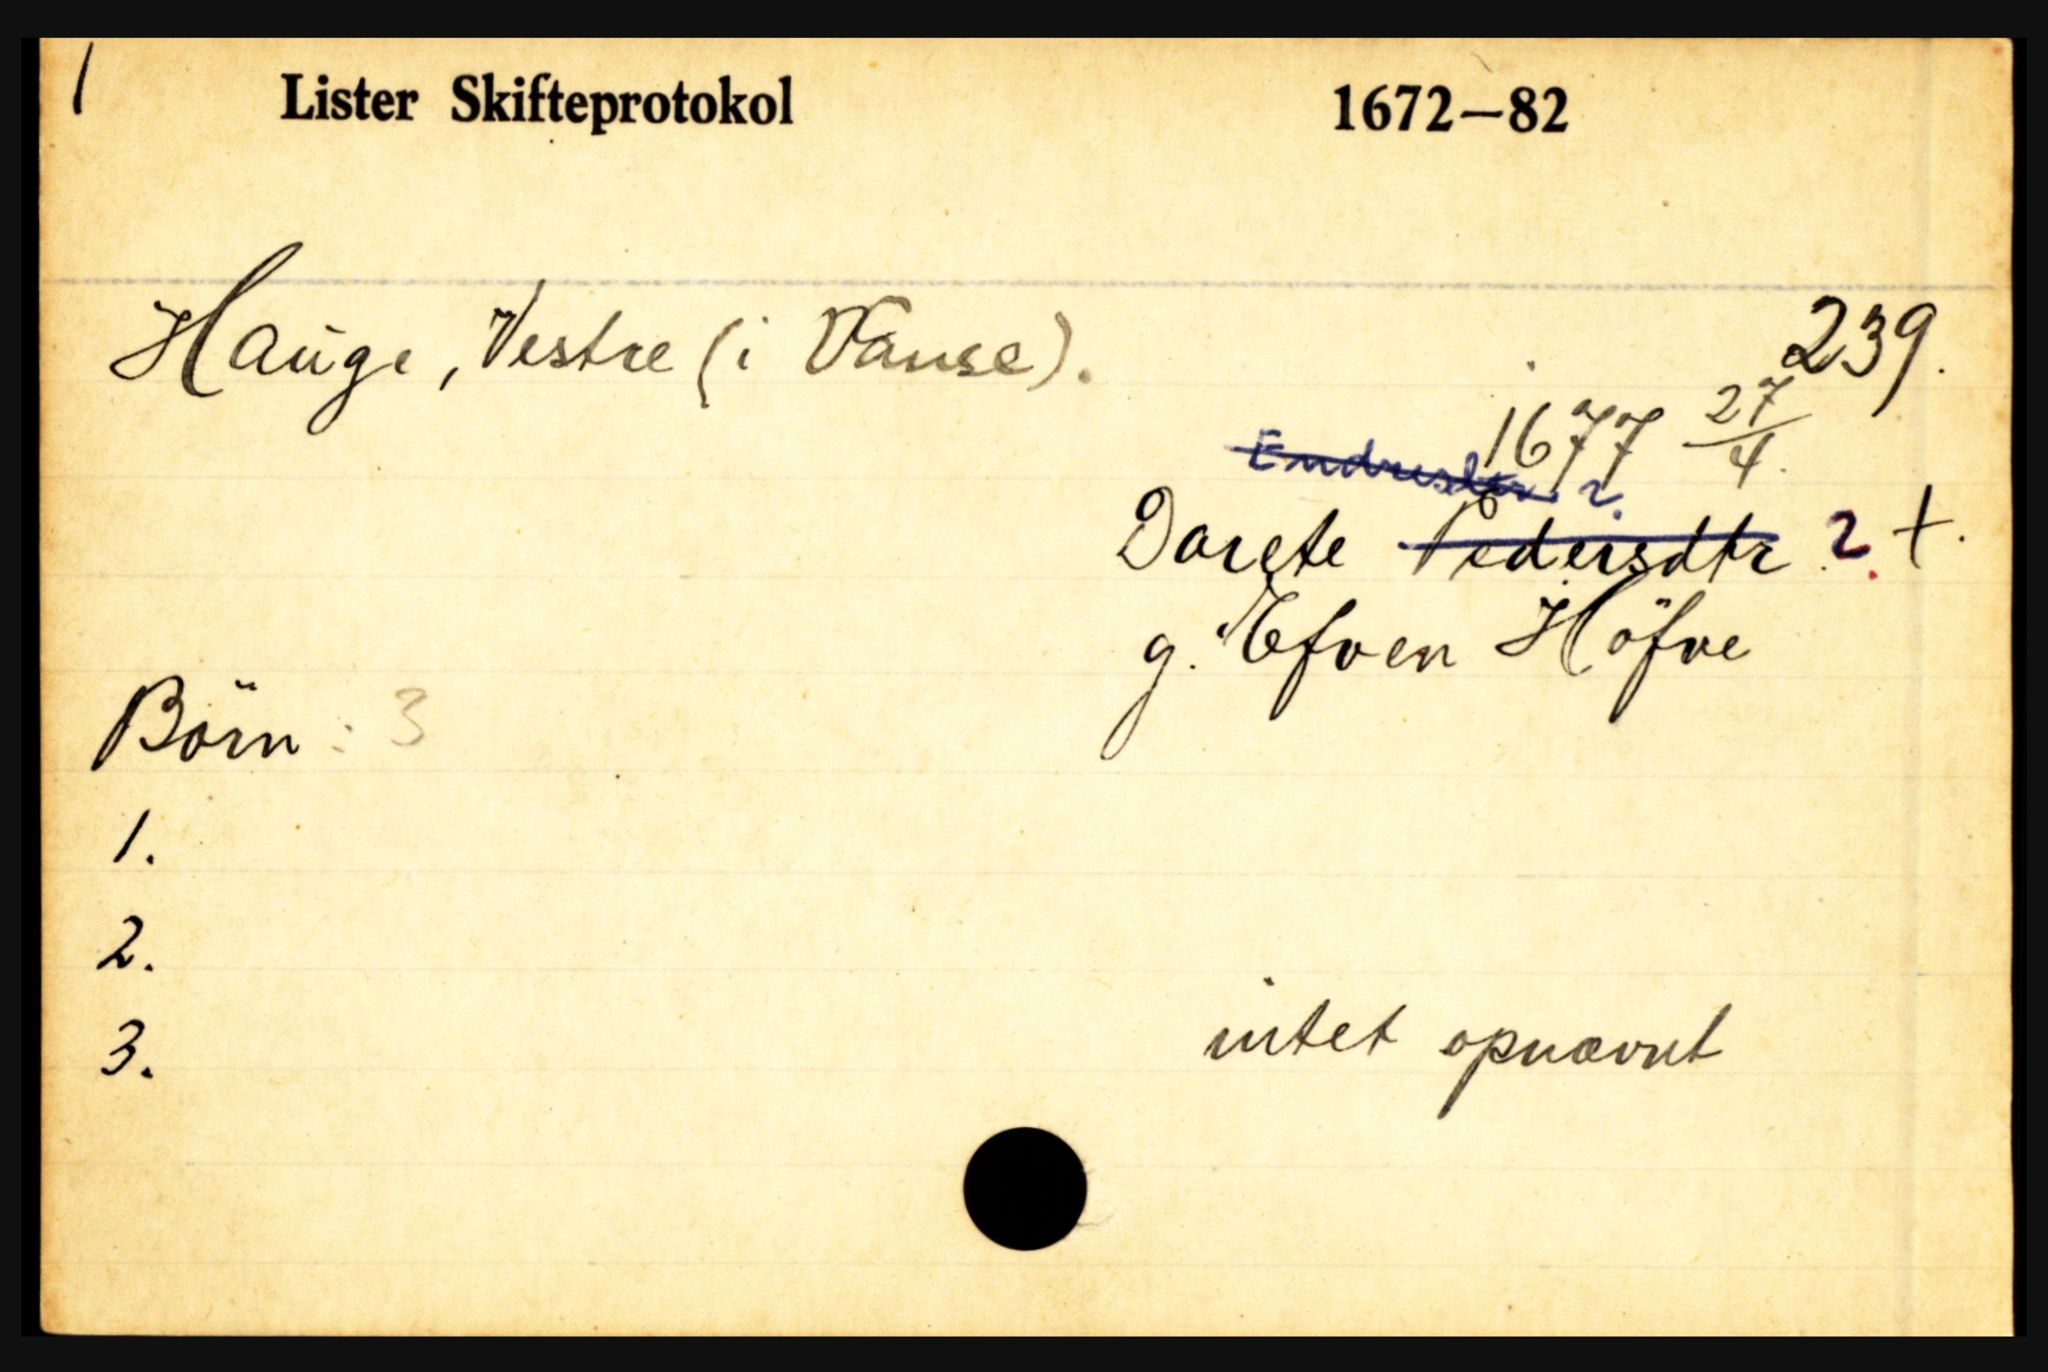 1
Lister Skifteprotokol 1672–82
Hauge, Vestre (i Vanse). 239.
1677 27/4.
Endresdtr. ?.
Dorete Pedersdtr ? +.
g. Efven Höfve
Börn : 3
1.
2.
3. intet opnævnt